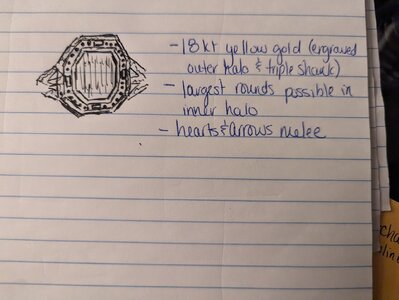 - 18kt yellow gold (engraved
outer halo & triple shank)
- largest rounds possible in
inner halo
- hearts & arrows melee